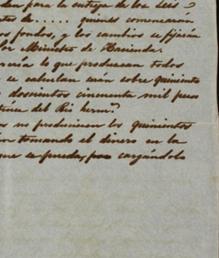 den para la entega de los dies
tes de..... quienes comenzarán
os fondos, y los cambios se fijarán
or Ministro de Hacienda.
ería lo que produzcan todos
se calculan serán sobre quinientos
doscientos cincuenta mil pesos
del Rio
as no produciesen los quinientos
tomando el dinero en la
que se pueda, pero cargándolo